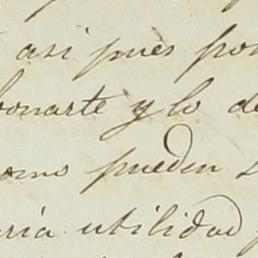 asi pues por
bonarte y lo de
como pueden
ria utilidad